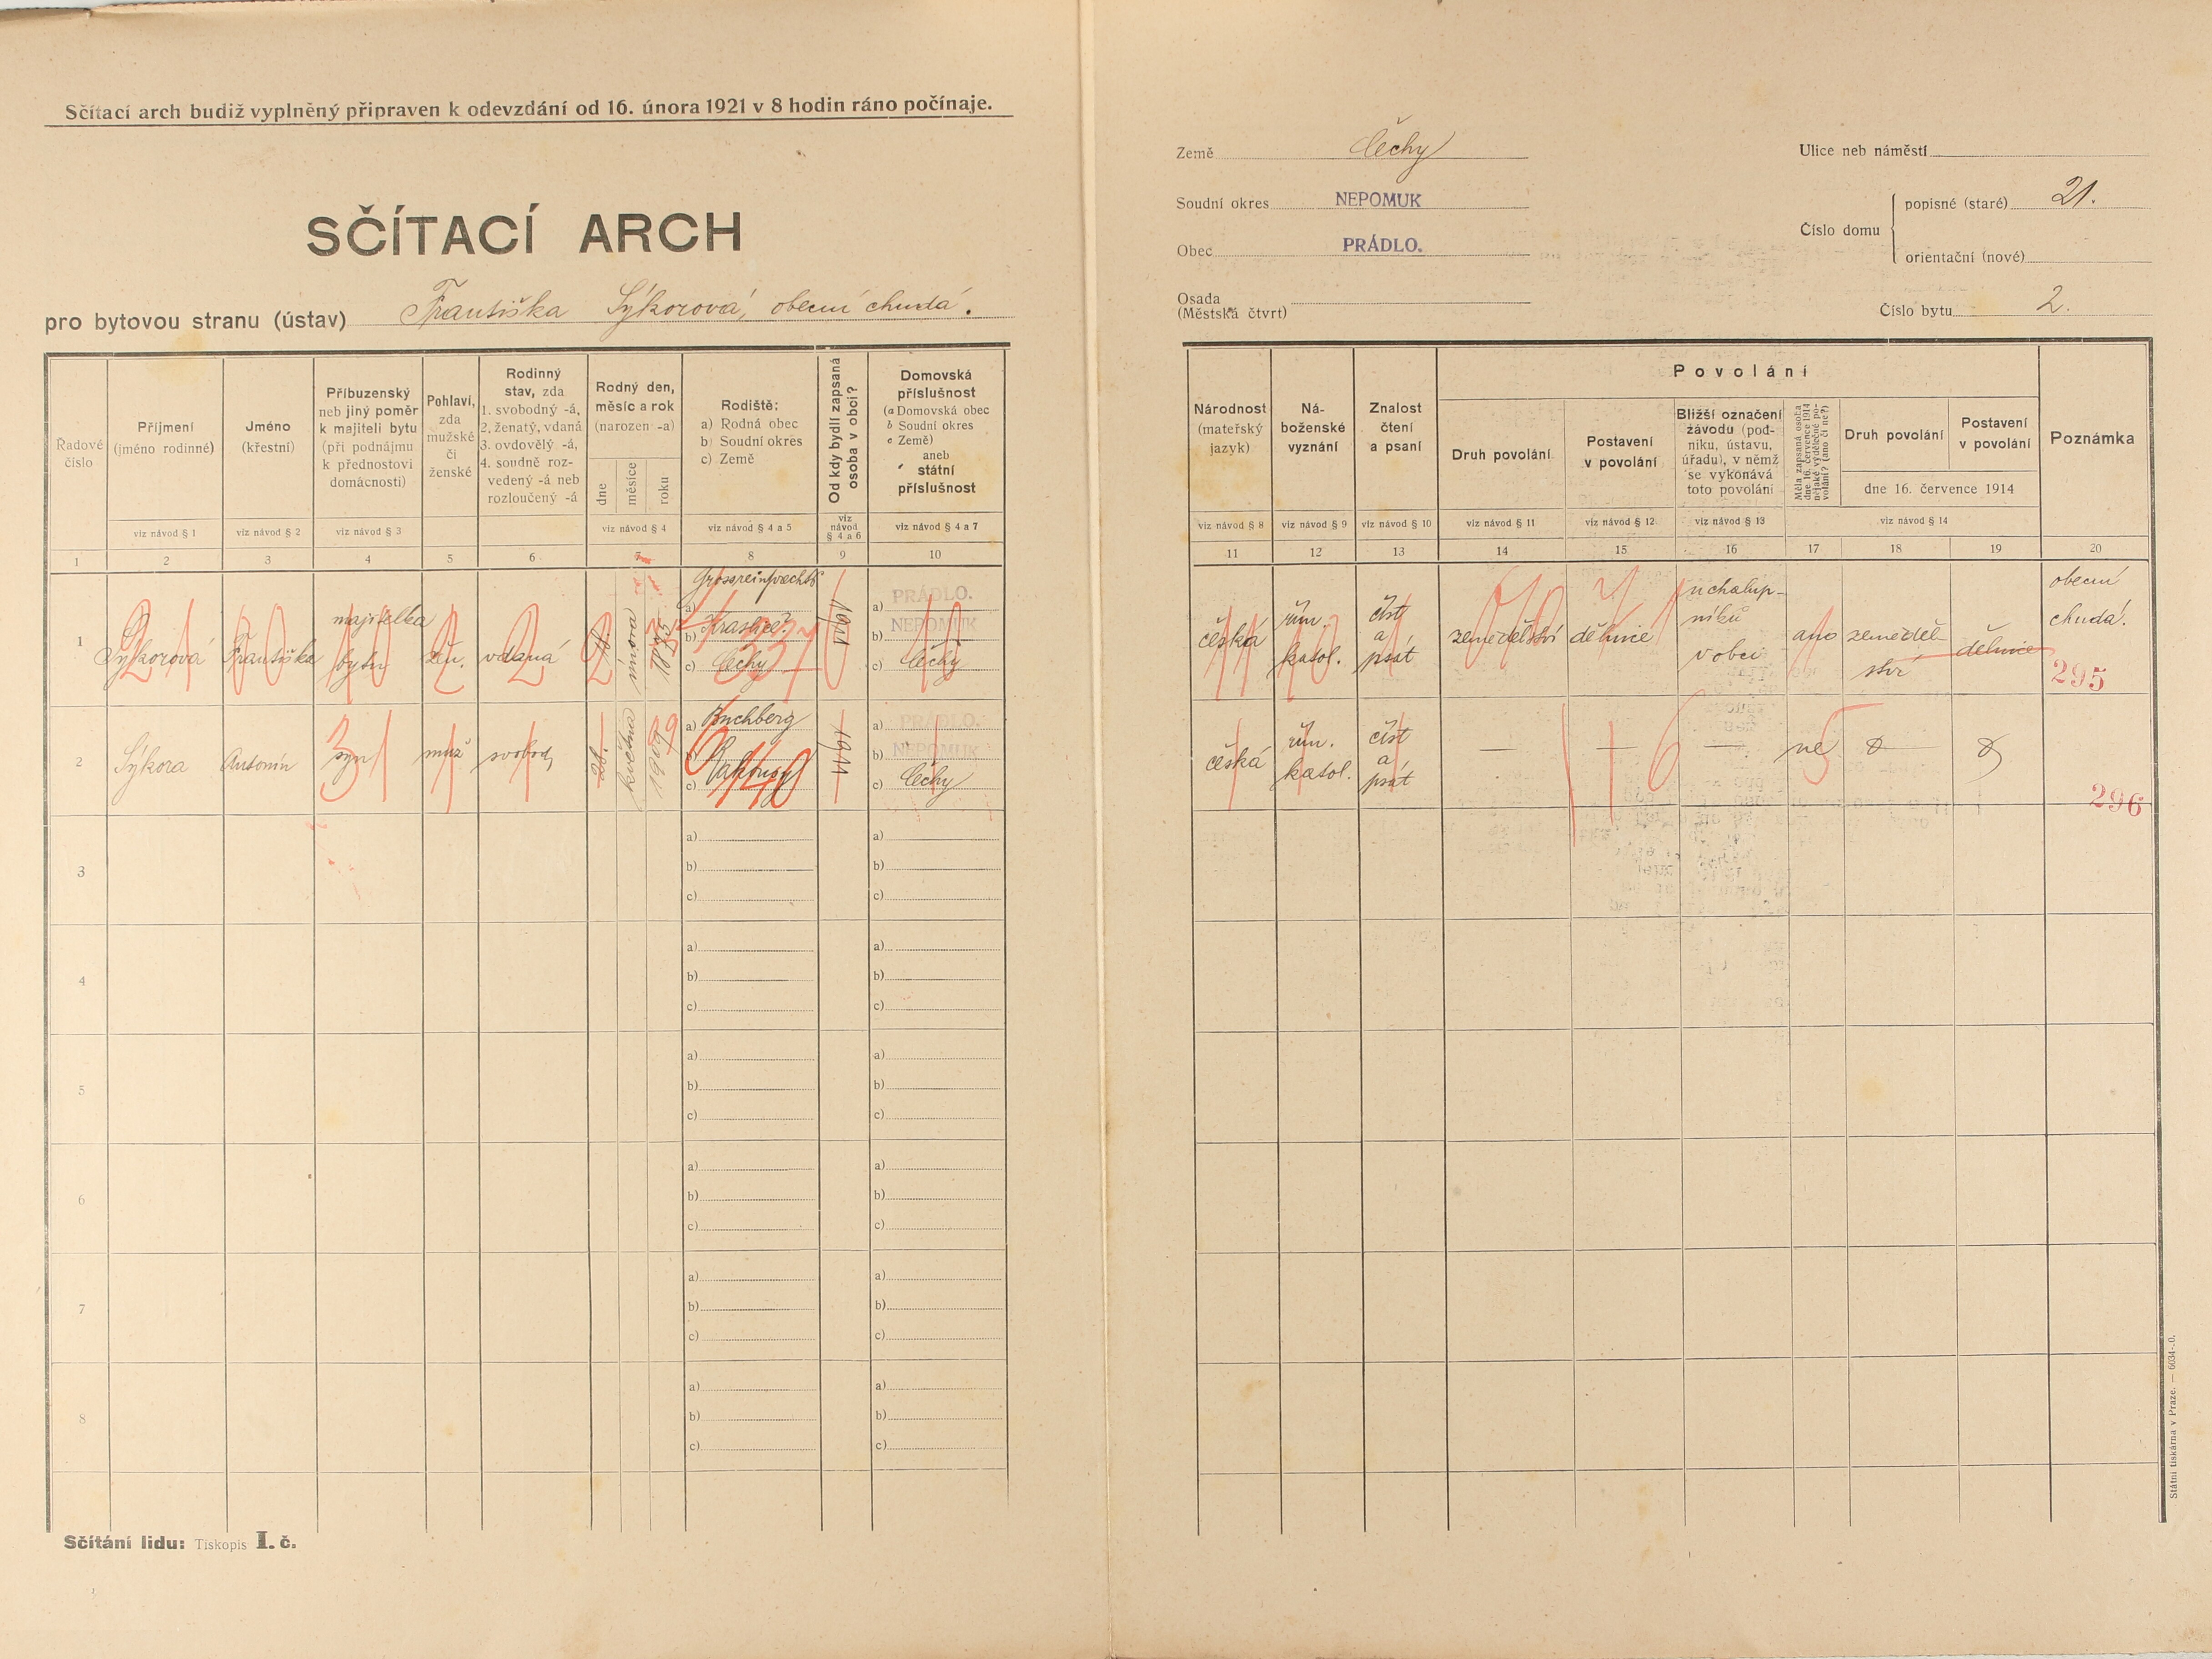 Sčítací arch budiž vyplněný připraven k odevzdání od 16. února 1921 v 8 hodin ráno počínaje.
SČÍTACÍ ARCH
pro bytovou stranu (ústav) Františka Sýkorová, obecní chudá.
Země Čechy
Soudní okres NEPOMUK
Obec PRÁDLO.
Osada
(Městská čtvrt)
Ulice neb náměstí
Číslo domu
popisné (staré) 21.
orientační (nové)
Číslo bytu 2.
Řadové číslo
Příjmení (jméno rodinné)
Jméno (křestní)
Příbuzenský neb jiný poměr k majiteli bytu (při podnájmu k přednostovi domácnosti)
Pohlaví, zda mužské či ženské
Rodinný stav, zda 1. svobodný -á, 2. ženatý, vdaná 3. ovdovělý -á, 4. soudně rozvedený -á neb rozloučený -á
Rodný den, měsíc a rok (narozen -a)
dne
měsíce
roku
Rodiště:
a) Rodná obec
b) Soudní okres
c) Země
Od kdy bydlí zapsaná osoba v obci?
Domovská příslušnost
(a Domovská obec
b Soudní okres
c Země)
aneb
státní příslušnost
viz návod § 1
viz návod § 2
viz návod § 3
viz návod § 4
viz návod § 4 a 5
viz návod § 4 a 6
viz návod § 4 a 7
1 2 3 4 5 6 7 8 9 10
Národnost (mateřský jazyk)
Náboženské vyznání
Znalost čtení a psaní
Povolání
Druh povolání
Postavení v povolání
Bližší označení závodu (podniku, ústavu, úřadu), v němž se vykonává toto povolání
Měla zapsaná osoba dne 16. července 1914 nějaké výdělečné povolání? (ano či ne?)
Druh povolání
Postavení v povolání
dne 16. července 1914
Poznámka
viz návod § 8
viz návod § 9
viz návod § 10
viz návod § 11
viz návod § 12
viz návod § 13
viz návod § 14
11 12 13 14 15 16 17 18 19 20
1
Sýkorová
Františka
majitelka
bytu
žen.
vdaná
února
a)
b) Kraslice
c) Čechy
a) PRÁDLO.
b) NEPOMUK
c) Čechy
česká
řím.
katol.
číst
a
psát
zemědělství
dělnice
u chalup-
níků
v obci
ano
zeměděl-
ství
dělnice
obecní
chudá.
295
2
Sýkora
Antonín
syn
muž
svobod,
28.
května
1909
a) Buchberg
b)
c)
1911
a) PRÁDLO.
b) NEPOMUK
c) Čechy
česká
řím.
katol.
číst
a
psát
—
—
—
ne
296
3
a)
b)
c)
a)
b)
c)
4
a)
b)
c)
a)
b)
c)
5
a)
b)
c)
a)
b)
c)
6
a)
b)
c)
a)
b)
c)
7
a)
b)
c)
a)
b)
c)
8
a)
b)
c)
a)
b)
c)
Sčítání lidu: Tiskopis I. č.
Státní tiskárna v Praze. — 6034-20.